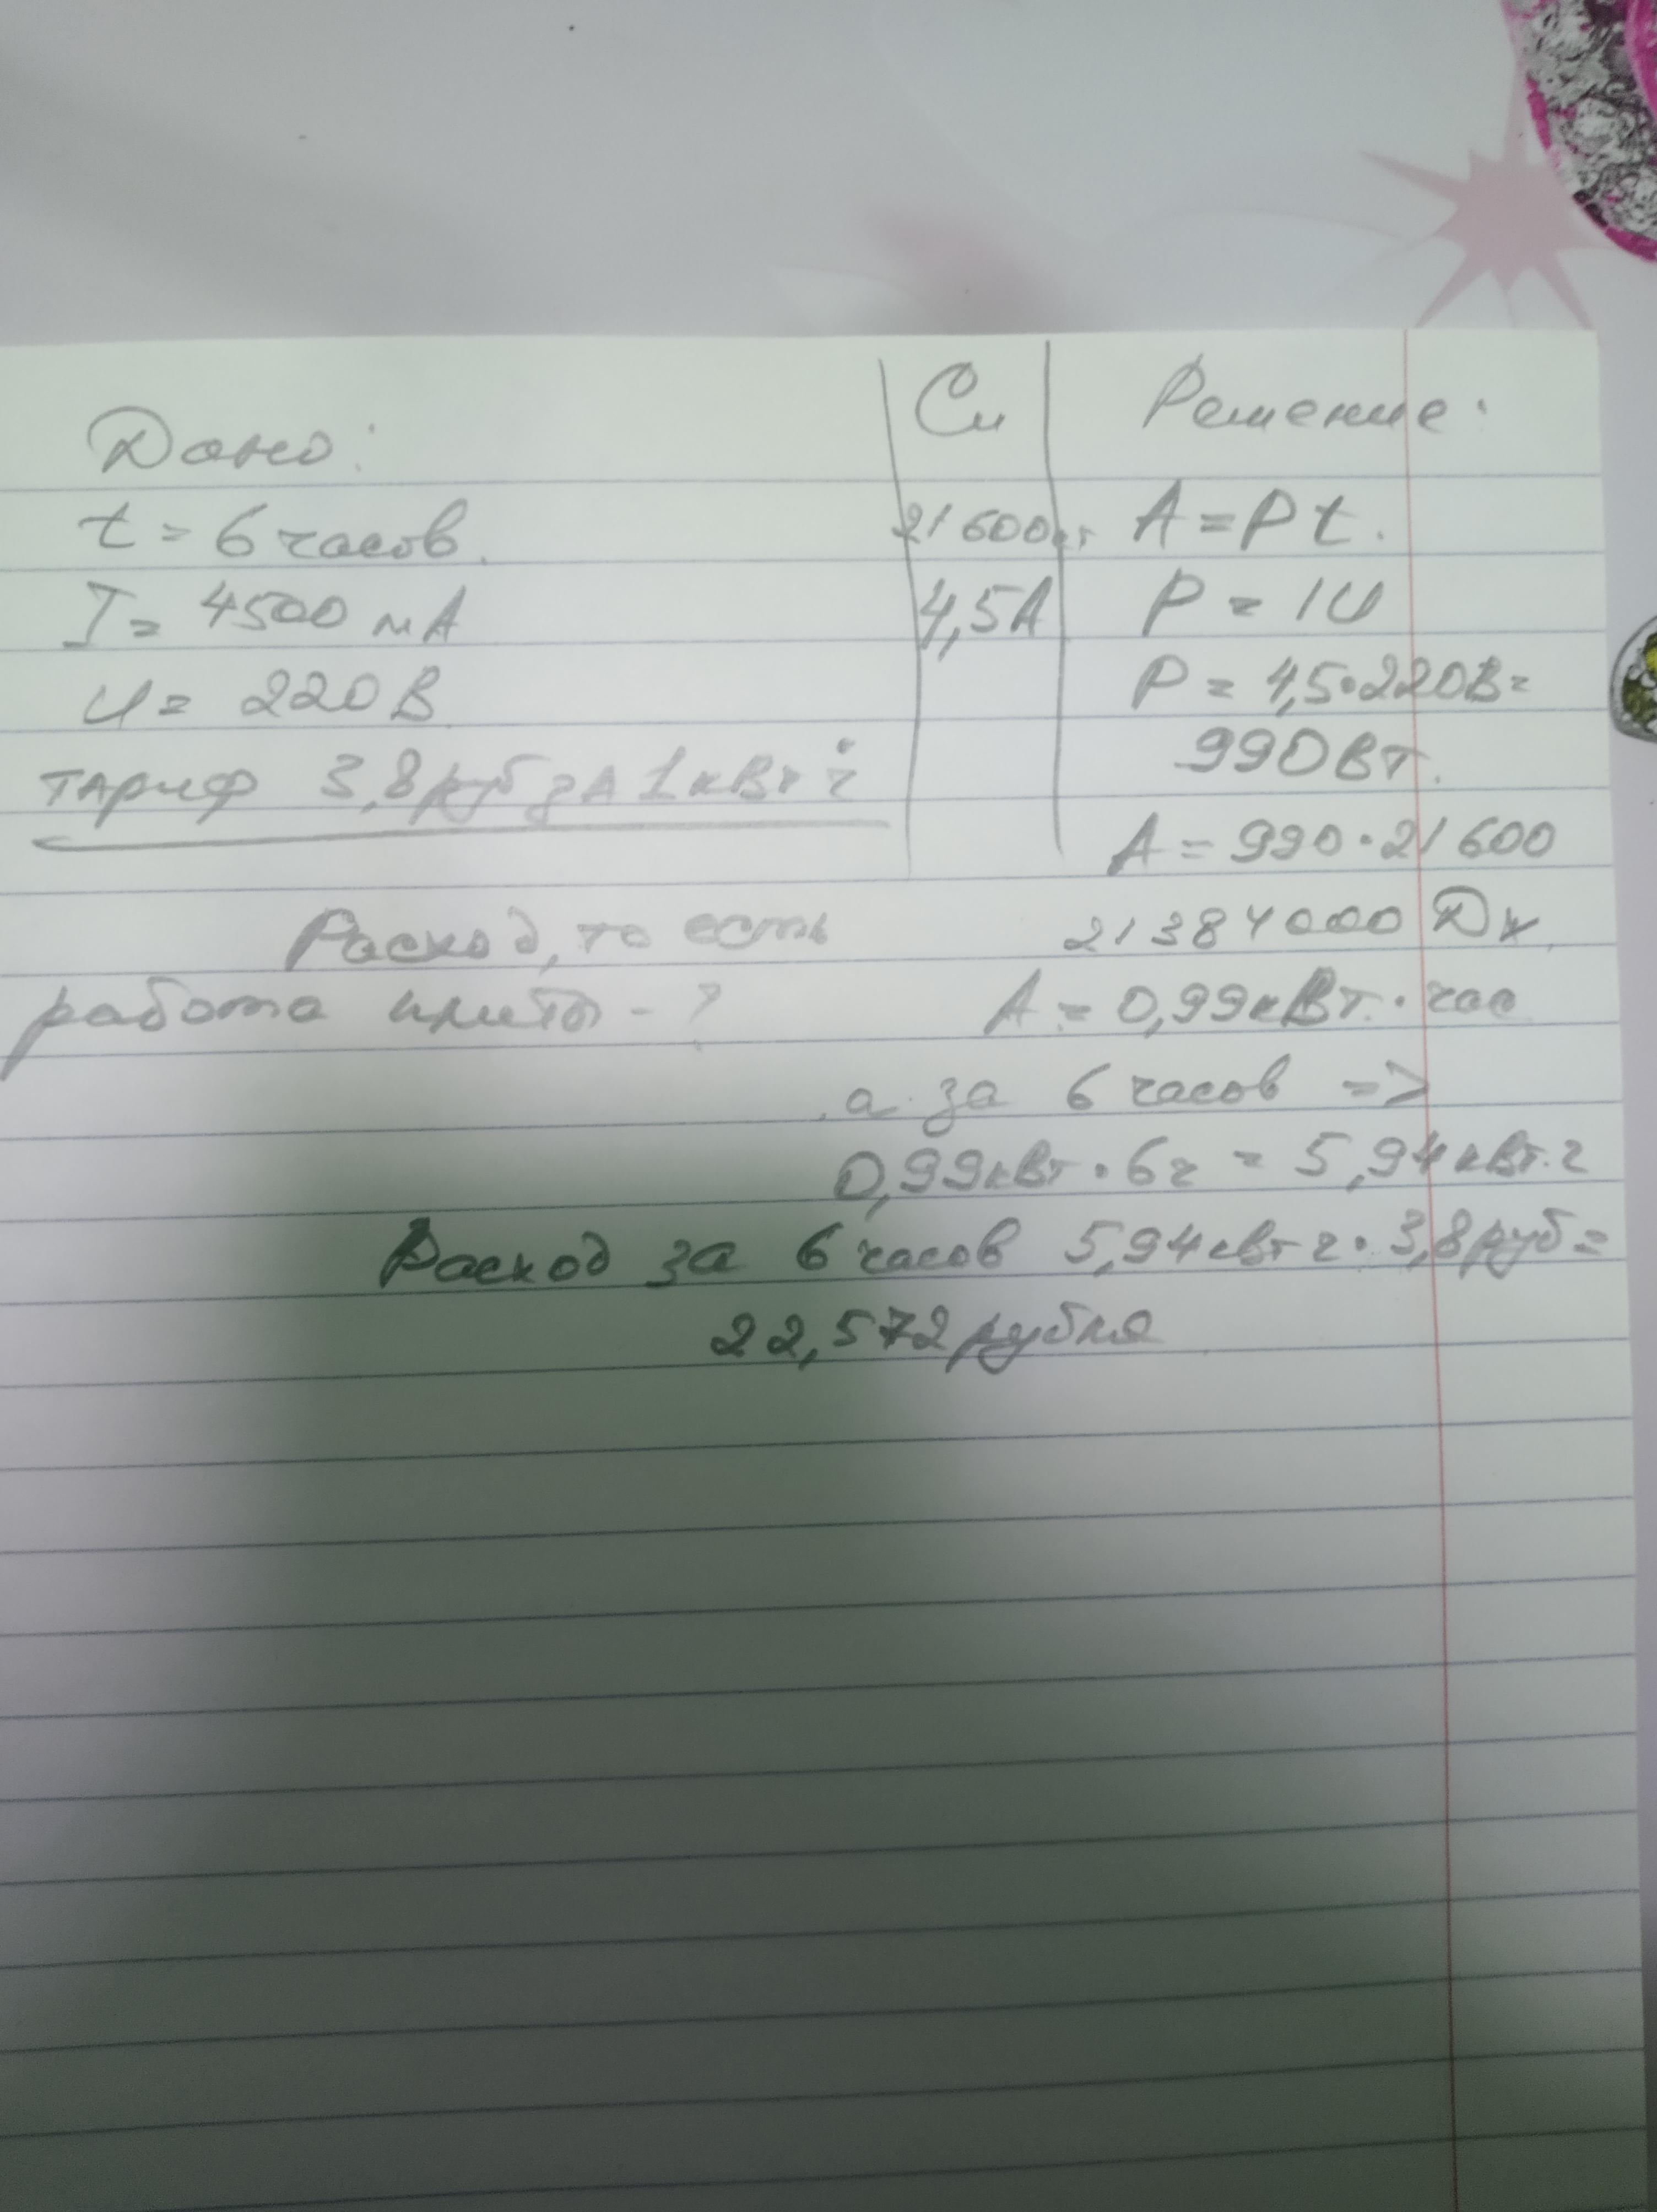 Дано:
t = 6 часов.
I = 4500 мА
U = 220 В
тариф 3,8 руб за 1 кВт ч
Расход, то есть
работа плиты - ?
Си
21 600
4,5А
Решение:
A = P t.
P = IU
P = 4,5 • 220В =
990 Вт.
A = 990 • 21 600
21384000 Дж.
A = 0,99 кВт. • час
а за 6 часов =>
0,99 кВт • 6ч = 5,94 кВт.ч
Расход за 6 часов 5,94 кВт ч • 3,8 руб =
22,572 рубля